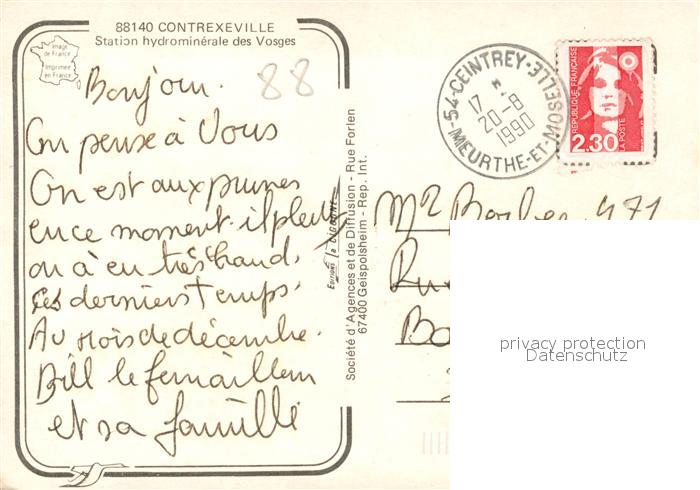 88140 CONTREXEVILLE
Station hydrominérale des Vosges
Image
de France
Imprimée
en France
88
Bonjour.
On pense à Vous
On est aux prunes
en ce moment. il pleut
on à eu très chaud.
ces derniers temps.
Au mois de décembre.
Bill le
et sa famille
Société d'Agences et de Diffusion - Rue Forlen
67400 Geispolsheim - Rep. Int.
Editions la CIGOGNE
54-CEINTREY-MEURTHE-ET-MOSELLE
17 *
20-8
1990
REPUBLIQUE FRANÇAISE
2,30
LA POSTE
Mr
privacy protection
Datenschutz